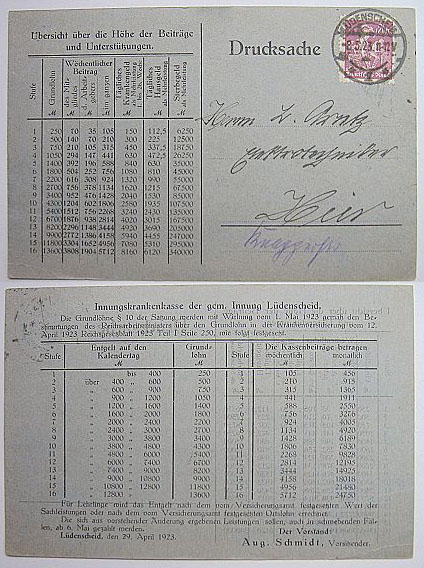 Übersicht über die Höhe der Beiträge
und Unterstützungen.
Stufe
Grundlohn
Wöchentlicher Beitrag
des Mitgliedes
d. Arbeitgebers
im ganzen
Tägliches Krankengeld
Tägliches Hausgeld
Sterbegeld
M M M M M M M
1 250 70 35 105 150 112,5 6250
2 500 140 70 210 300 225 12500
3 750 210 105 315 450 337,5 18750
4 1050 294 147 441 630 472,5 26250
5 1400 392 196 588 840 630 35000
6 1800 504 252 756 1080 810 45000
7 2200 616 308 924 1320 990 55000
8 2700 756 378 1134 1620 1215 67500
9 3400 952 476 1428 2040 1530 85000
10 4300 1204 602 1806 2580 1935 107500
11 5400 1512 756 2268 3240 2430 135000
12 6700 1876 938 2814 4020 3015 167500
13 8200 2296 1148 3444 4920 3690 205000
14 9900 2772 1386 4158 5940 4455 247500
15 11800 3304 1652 4956 7080 5310 295000
16 13600 3808 1904 5712 8160 6120 340000
Drucksache
LÜDENSCHEID
Herrn
Elektrotechniker
Hier
Innungskrankenkasse der gem. Innung Lüdenscheid.
Die Grundlöhne § 10 der Satzung werden mit Wirkung vom 1. Mai 1923 gemäß den Be-
stimmungen des Reichsarbeitsministers über den Grundlohn in der Krankenversicherung vom 12.
April 1923 Reichsgesetzblatt 1923 Teil I Seite 250, wie folgt festgesetzt.
Stufe Entgelt auf den Kalendertag M Grundlohn M Stufe Die Kassenbeiträge betragen wöchentlich M monatlich M
1 bis 400 250 1 105 456
2 über 400 „ 600 500 2 210 915
3 „ 600 „ 900 750 3 315 1365
4 „ 900 „ 1200 1050 4 441 1911
5 „ 1200 „ 1600 1400 5 588 2550
6 „ 1600 „ 2000 1800 6 756 3276
7 „ 2000 „ 2400 2200 7 924 4005
8 „ 2400 „ 3000 2700 8 1134 4920
9 „ 3000 „ 3800 3400 9 1428 6189
10 „ 3800 „ 4800 4300 10 1806 7830
11 „ 4800 „ 6000 5400 11 2268 9828
12 „ 6000 „ 7400 6700 12 2814 12195
13 „ 7400 „ 9000 8200 13 3444 14925
14 „ 9000 „ 10800 9900 14 4158 18018
15 „ 10800 „ 12800 11800 15 4956 21480
16 „ 12800 13600 16 5712 24750
Für Lehrlinge wird das Entgelt nach dem vom Versicherungsamt festgesetzten Wert der
Sachleistungen oder nach dem vom Versicherungsamt festgesetzten Ortslohn errechnet.
Die sich aus vorstehender Änderung ergebenen Leistungen sollen, auch in schwebenden Fäl-
len, ab 6. Mai gezahlt werden.
Lüdenscheid, den 29. April 1923.
Der Vorstand:
Aug. Schmidt, Vorsitzender.